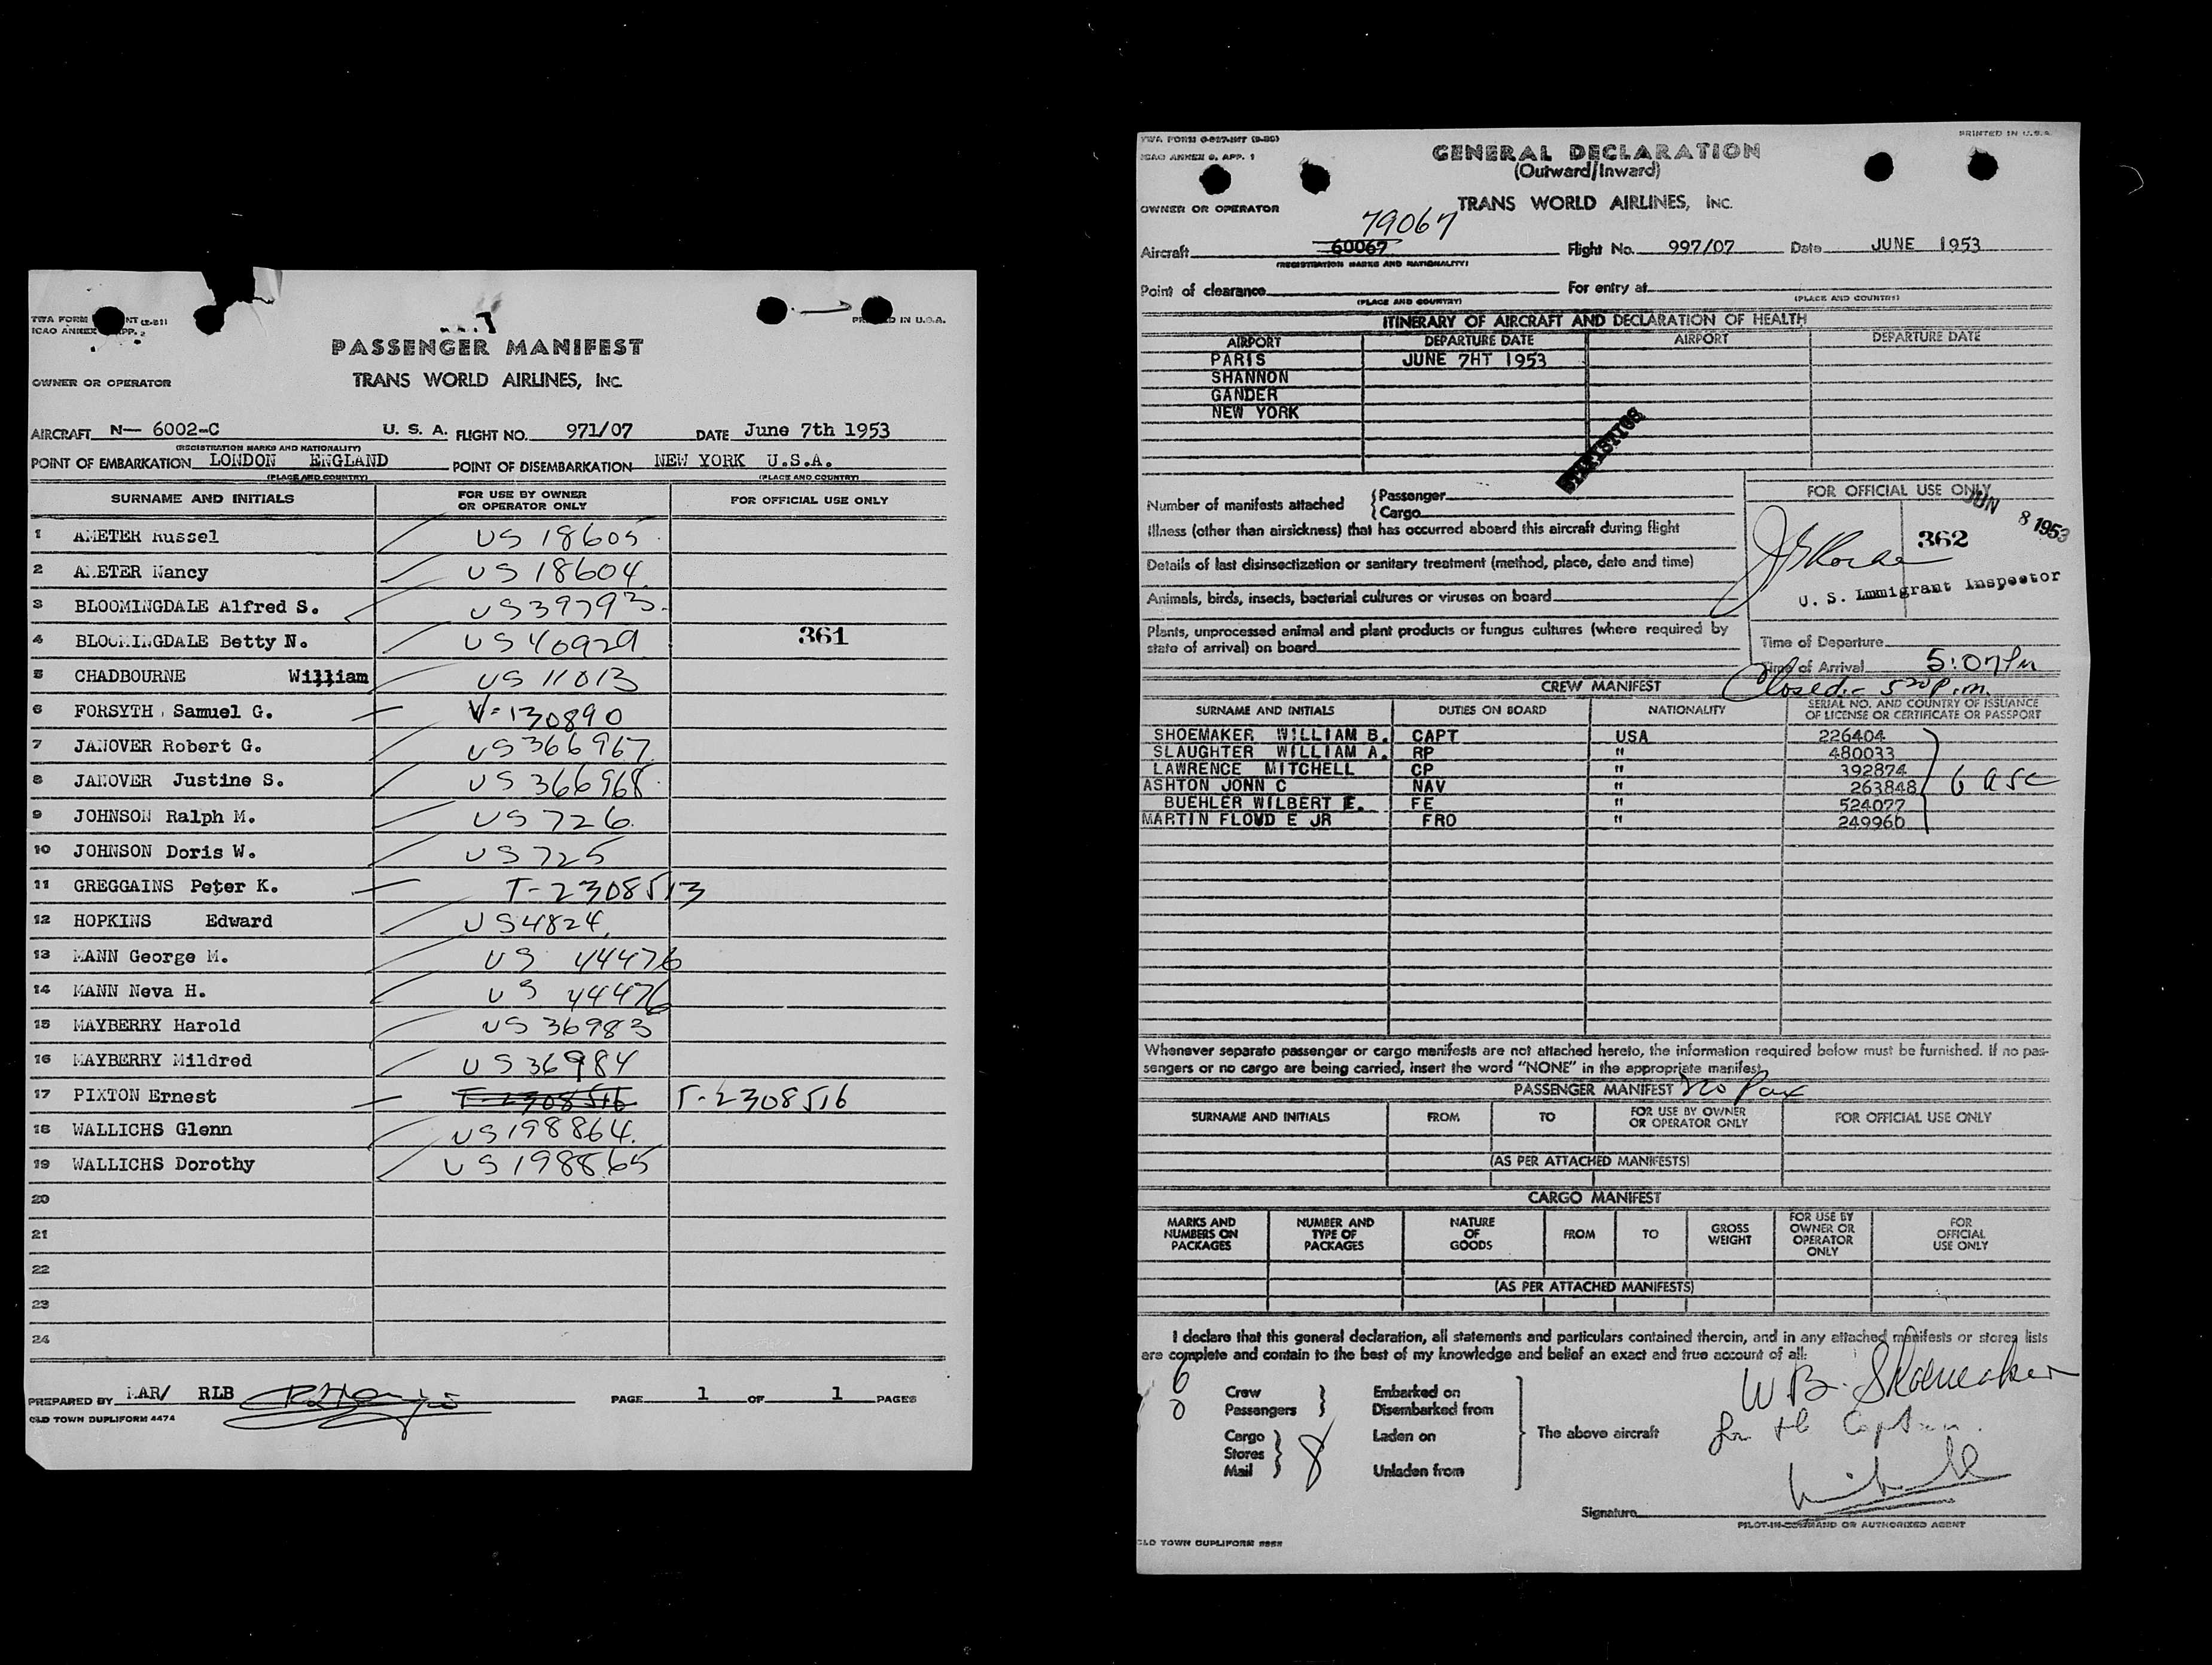 PASSENGER MANIFEST
OWNER OR OPERATOR TRANS WORLD AIRLINES, INC.
AIRCRAFT N— 6002-C U. S. A. FLIGHT NO. 971/07 DATE June 7th 1953
(REGISTRATION MARKS AND NATIONALITY)
POINT OF EMBARKATION LONDON ENGLAND POINT OF DISEMBARKATION NEW YORK U.S.A.
(PLACE AND COUNTRY) (PLACE AND COUNTRY)
SURNAME AND INITIALS FOR USE BY OWNER OR OPERATOR ONLY FOR OFFICIAL USE ONLY
1 AMETER Russel US 18605
2 AMETER Nancy US 18604
3 BLOOMINGDALE Alfred S. US39793
4 BLOOMINGDALE Betty N. US40929 361
5 CHADBOURNE William US 11013
6 FORSYTH Samuel G. V-130890
7 JANOVER Robert G. US366967
8 JANOVER Justine S. US 366968
9 JOHNSON Ralph M. US726
10 JOHNSON Doris W. US725
11 GREGGAINS Peter K. T-2308513
12 HOPKINS Edward US4824
13 MANN George M. US 44476
14 MANN Neva H. US 44476
15 MAYBERRY Harold US 36983
16 MAYBERRY Mildred US36984
17 PIXTON Ernest T-2308516 T-2308516
18 WALLICHS Glenn US198864
19 WALLICHS Dorothy US198865
20
21
22
23
24
PREPARED BY MAR/ RLB PAGE 1 OF 1 PAGES
OLD TOWN DUPLIFORM 4474
TWA FORM 0-927-INT (9-50) PRINTED IN U.S.A.
ICAO ANNEX 9, APP. 1
GENERAL DECLARATION
(Outward/Inward)
OWNER OR OPERATOR TRANS WORLD AIRLINES, INC.
79067
Aircraft 60067 Flight No. 997/07 Date JUNE 1953
(REGISTRATION MARKS AND NATIONALITY)
Point of clearance For entry at
(PLACE AND COUNTRY) (PLACE AND COUNTRY)
ITINERARY OF AIRCRAFT AND DECLARATION OF HEALTH
AIRPORT DEPARTURE DATE AIRPORT DEPARTURE DATE
PARIS JUNE 7HT 1953
SHANNON
GANDER
NEW YORK
STATISTICS
Number of manifests attached {Passenger
{Cargo
FOR OFFICIAL USE ONLY
JUN 8 1953
362
U. S. Immigrant Inspector
Illness (other than airsickness) that has occurred aboard this aircraft during flight
Details of last disinsectization or sanitary treatment (method, place, date and time)
Animals, birds, insects, bacterial cultures or viruses on board
Plants, unprocessed animal and plant products or fungus cultures (where required by
state of arrival) on board
Time of Departure
Time of Arrival 5:07PM
Closed - 5 20 P.m.
CREW MANIFEST
SURNAME AND INITIALS DUTIES ON BOARD NATIONALITY SERIAL NO. AND COUNTRY OF ISSUANCE OF LICENSE OR CERTIFICATE OR PASSPORT
SHOEMAKER WILLIAM B. CAPT USA 226404
SLAUGHTER WILLIAM A. RP " 480033
LAWRENCE MITCHELL CP " 392874
ASHTON JONN C NAV " 263848 6 USC
BUEHLER WILBERT E. FE " 524077
MARTIN FLOUD E JR FRO " 249960
Whenever separate passenger or cargo manifests are not attached hereto, the information required below must be furnished. If no pas-
sengers or no cargo are being carried, insert the word "NONE" in the appropriate manifest.
PASSENGER MANIFEST No Pax
SURNAME AND INITIALS FROM TO FOR USE BY OWNER OR OPERATOR ONLY FOR OFFICIAL USE ONLY
(AS PER ATTACHED MANIFESTS)
CARGO MANIFEST
MARKS AND NUMBERS ON PACKAGES NUMBER AND TYPE OF PACKAGES NATURE OF GOODS FROM TO GROSS WEIGHT FOR USE BY OWNER OR OPERATOR ONLY FOR OFFICIAL USE ONLY
(AS PER ATTACHED MANIFESTS)
I declare that this general declaration, all statements and particulars contained therein, and in any attached manifests or stores lists
are complete and contain to the best of my knowledge and belief an exact and true account of all:
6 Crew Embarked on
0 Passengers Disembarked from
Cargo Laden on
Stores The above aircraft
Mail Unladen from
W B. Shoemaker
for the Captain.
Signature
PILOT-IN-COMMAND OR AUTHORIZED AGENT
OLD TOWN DUPLIFORM